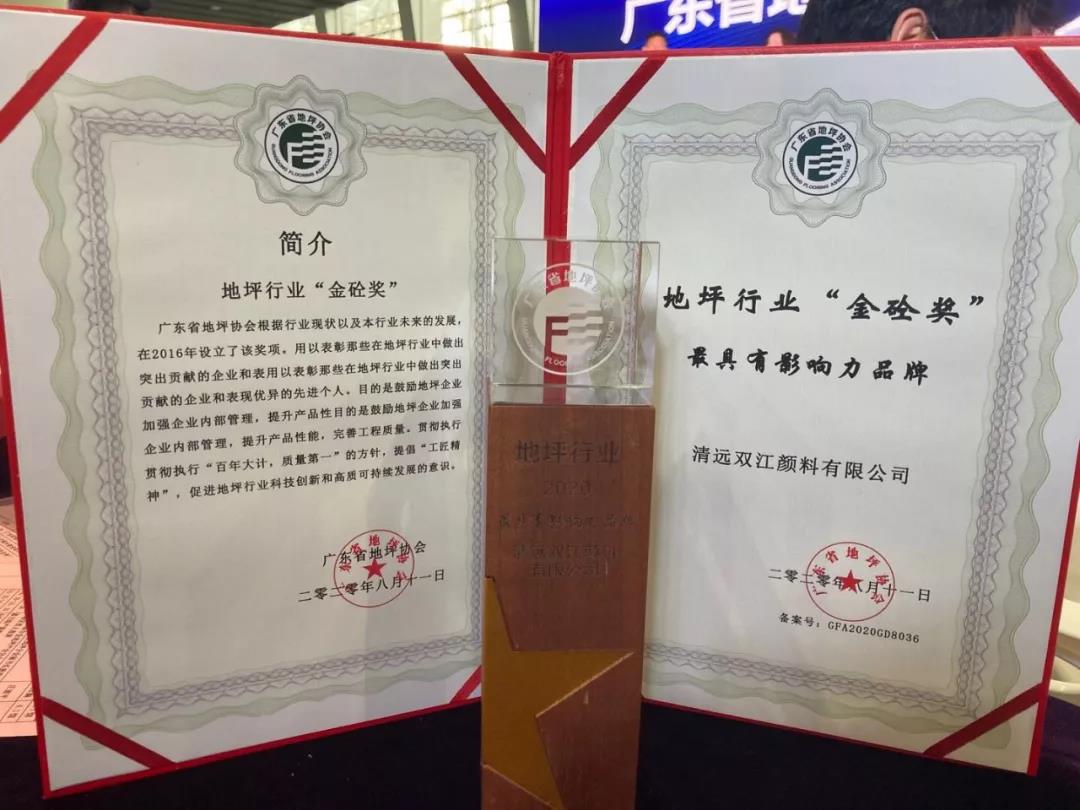 广东省地
广东省地坪协会
GUANGDONG FLOORING ASSOCIATION
简介
地坪行业“金砼奖”
广东省地坪协会根据行业现状以及本行业未来的发展，
在2016年设立了该奖项。用以表彰那些在地坪行业中做出
突出贡献的企业和表用以表彰那些在地坪行业中做出突出
贡献的企业和表现优异的先进个人。目的是鼓励地坪企业
加强企业内部管理，提升产品性目的是鼓励地坪企业加强
企业内部管理，提升产品性能，完善工程质量。贯彻执行
贯彻执行“百年大计，质量第一”的方针，提倡“工匠精
神”，促进地坪行业科技创新和高质可持续发展的意识。
广东省地坪协会
二零二零年八月十一日
广东省地坪协会
广东省地坪协会
GUANGDONG FLOORING ASSOCIATION
地坪行业“金砼奖”
最具有影响力品牌
清远双江颜料有限公司
二零二零年八月十一日
广东省地坪协会
备案号：GFA2020GD8036
省地坪
FLOORING
地坪行业
2020
最具有影响力品牌
清远双江颜料
有限公司